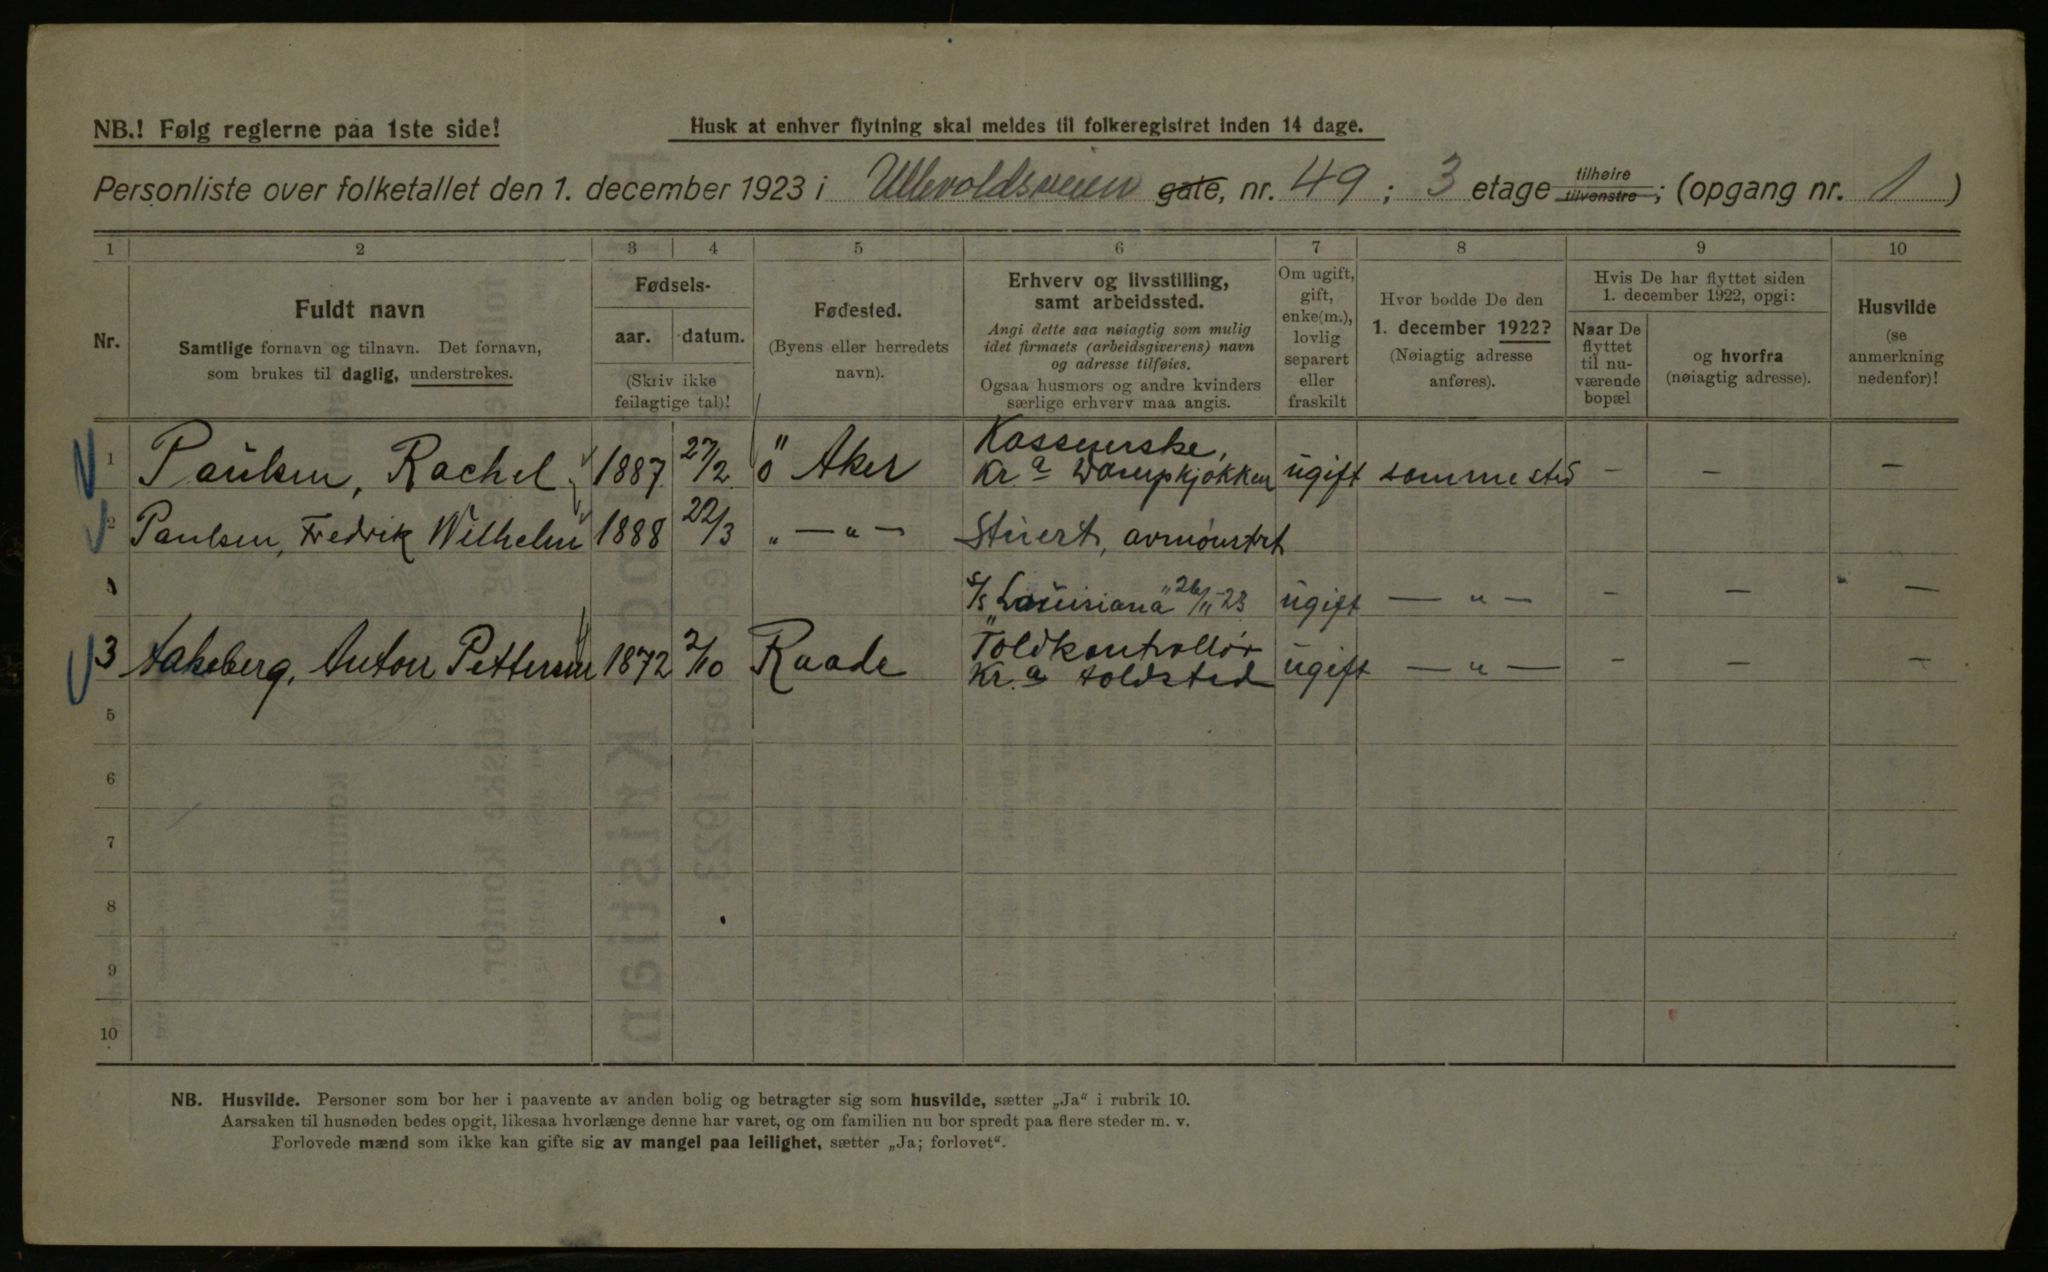 NB.! Følg reglerne paa 1ste side!
Husk at enhver flytning skal meldes til folkeregistret inden 14 dage.
Personliste over folketallet den 1. december 1923 i Ullevoldsveien gate, nr. 49; 3 etage tilhøire tilvenstre; (opgang nr. 1)
1 2 3 4 5 6 7 8 9 10
Nr.
Fuldt navn
Samtlige fornavn og tilnavn. Det fornavn,
som brukes til daglig, understrekes.
Fødsels-
aar. datum.
(Skriv ikke
feilagtige tal)!
Fødested.
(Byens eller herredets
navn).
Erhverv og livsstilling,
samt arbeidssted.
Angi dette saa nøiagtig som mulig
idet firmaets (arbeidsgiverens) navn
og adresse tilføies.
Ogsaa husmors og andre kvinders
særlige erhverv maa angis.
Om ugift,
gift,
enke(m.),
lovlig
separert
eller
fraskilt
Hvor bodde De den
1. december 1922?
(Nøiagtig adresse
anføres).
Hvis De har flyttet siden
1. december 1922, opgi:
Naar De
flyttet
til nu-
værende
bopæl
og hvorfra
(nøiagtig adresse).
Husvilde
(se
anmerkning
nedenfor)!
Kasserske,
1 Paulsen, Rachel 1887 27/2 ö Aker Kr.a Dampkjøkken ugift samme sted – – –
2 Paulsen, Fredrik Wilhelm 1888 22/3 „ — „ — Stuert, avmønstret
s/s „Louisiana" 26/11-23 ugift — „ — – – –
Toldkontrollør
3 Aakeberg, Anton Pettersen 1872 2/10 Raade Kr.a toldsted ugift — „ — – – –
5
6
7
8
9
10
NB. Husvilde. Personer som bor her i paavente av anden bolig og betragter sig som husvilde, sætter „Ja" i rubrik 10.
Aarsaken til husnøden bedes opgit, likesaa hvorlænge denne har varet, og om familien nu bor spredt paa flere steder m. v.
Forlovede mænd som ikke kan gifte sig av mangel paa leilighet, sætter „Ja; forlovet".